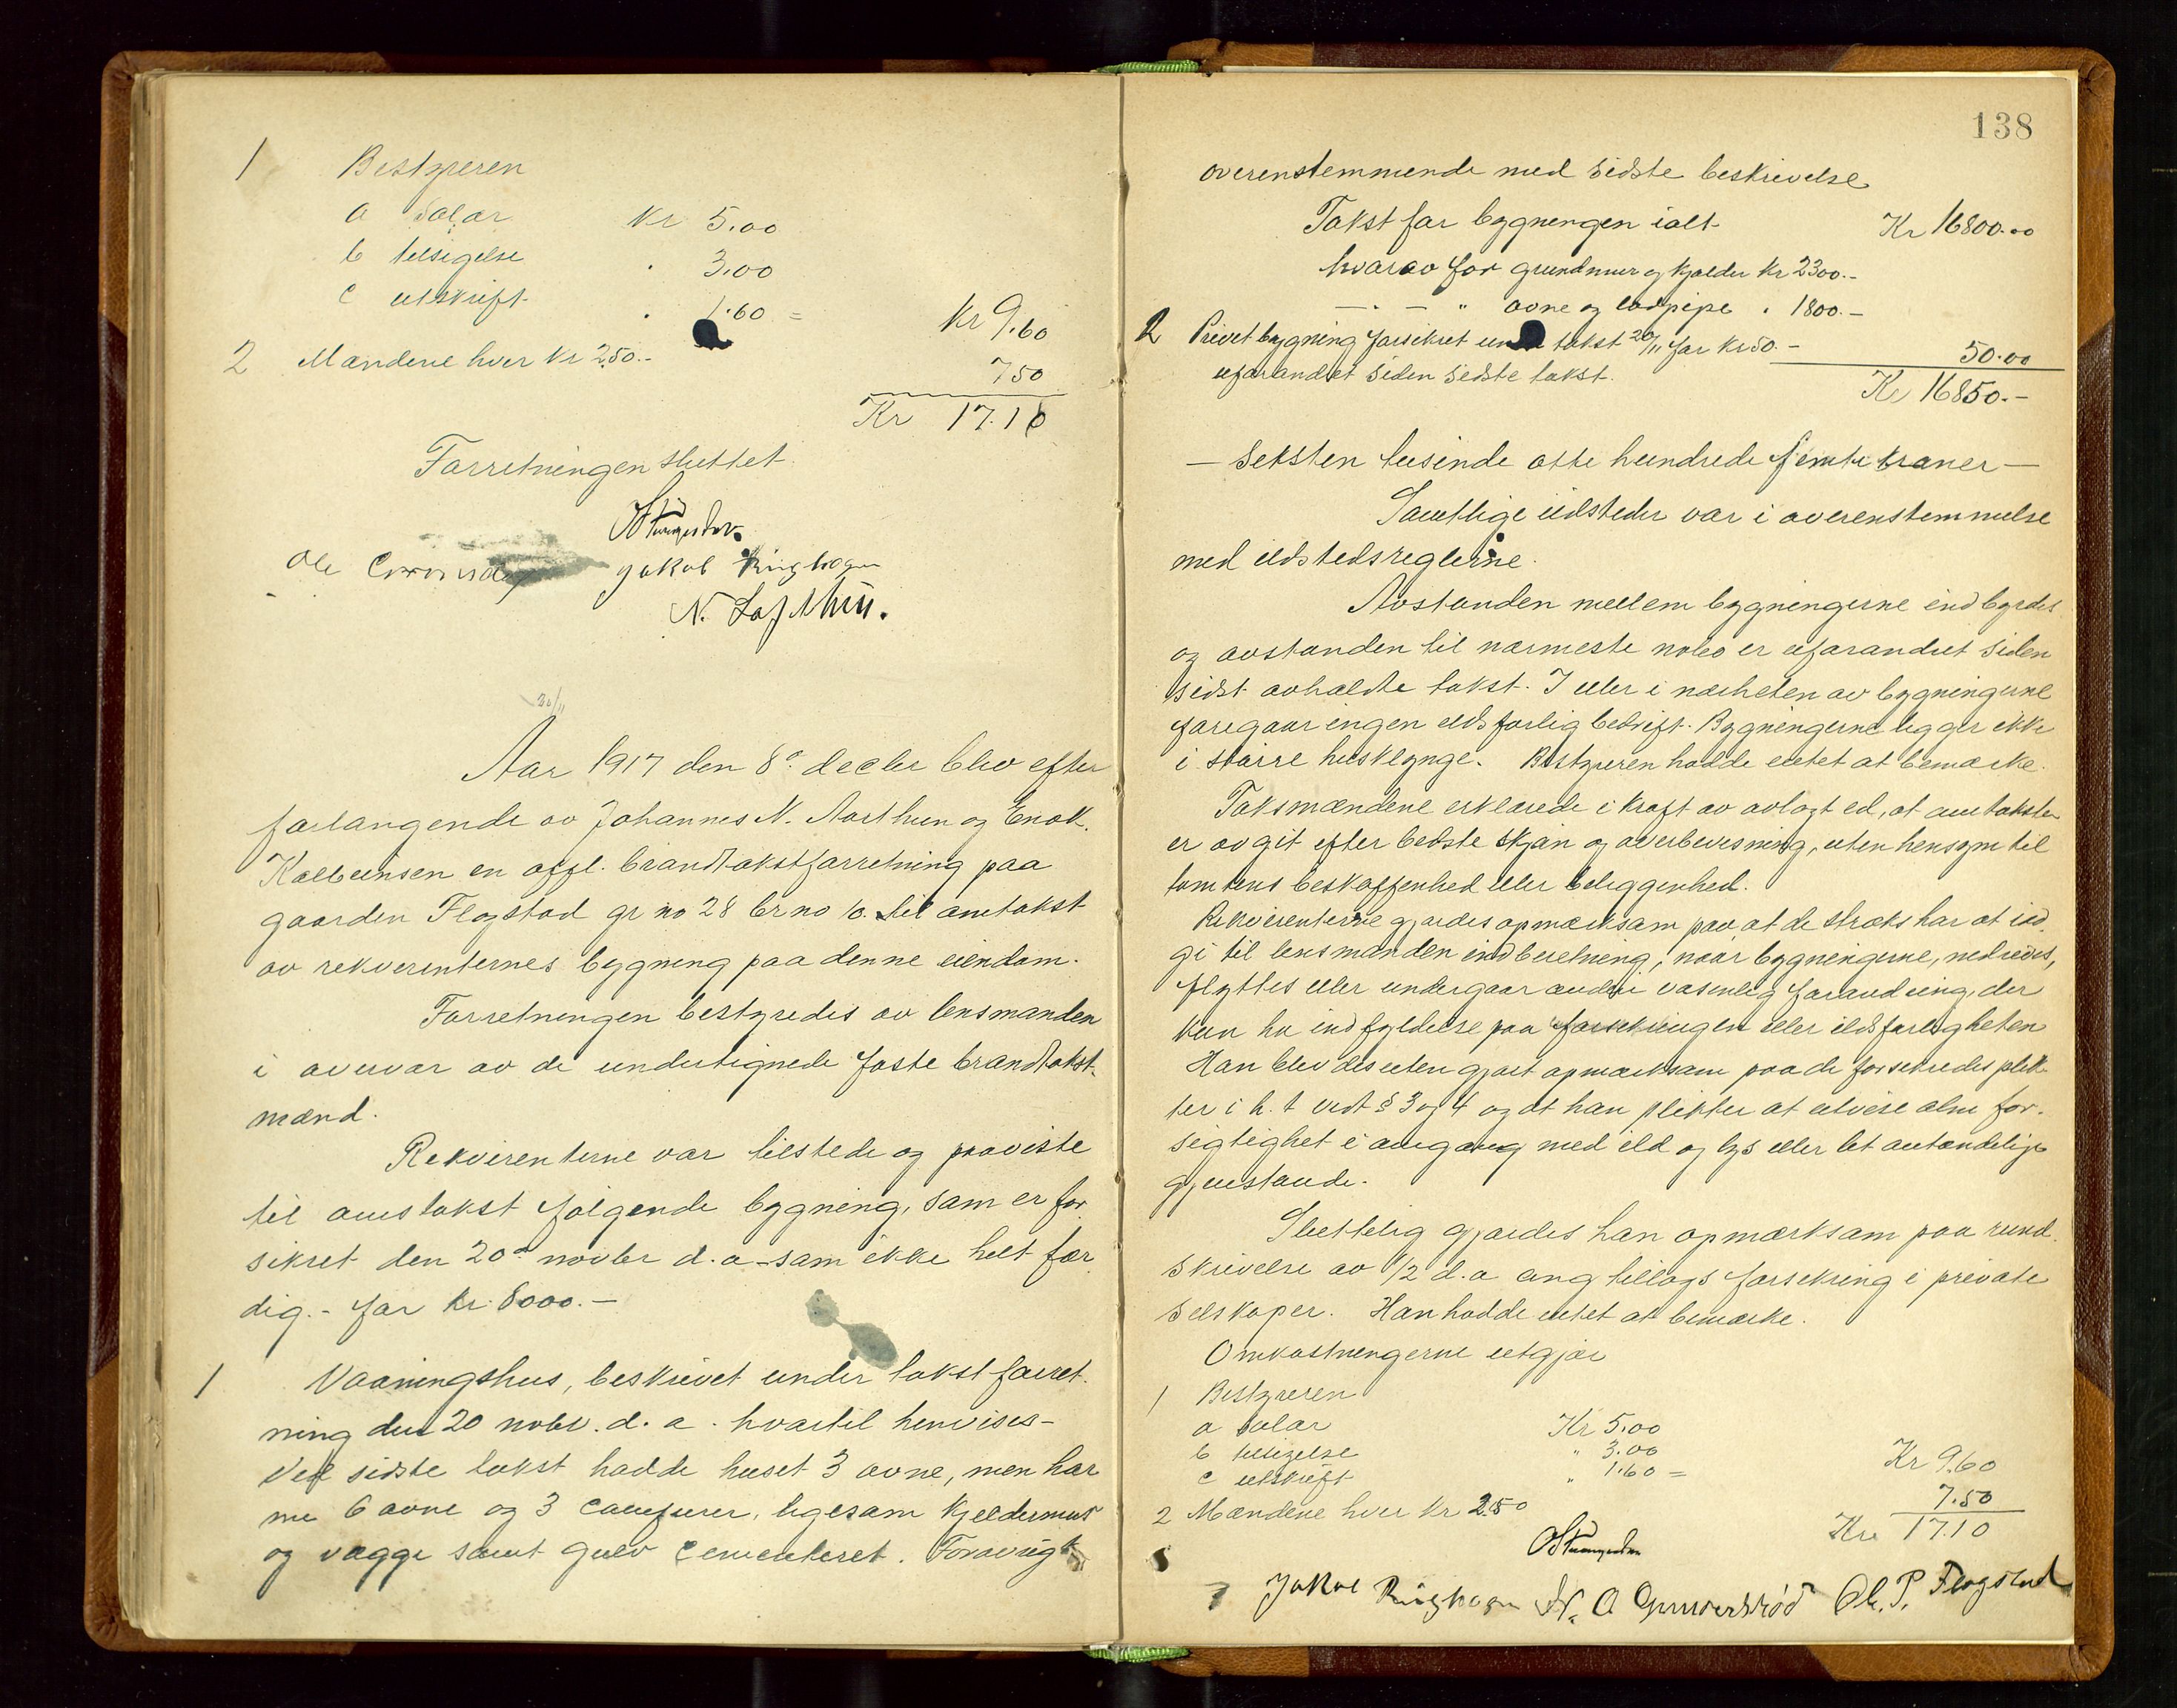 1 Bestyreren
a Salær Kr 5.00
b tilsigelse " 3.00
c utskrift " 1.60 = Kr 9.60
2 Mændene hver Kr 2.50.- 7 50
Kr 17.10
Forretningen sluttet
Ole
Jakob Ringhagen
N. Lofthus.
20/11
Aar 1917 den 8de decbr blev efter
forlangende av Johannes N. Aarthun og Enok
Kolbeinsen en offl. brandtakstforretning paa
gaarden Flogstad gr no 28 br no 10 til omtakst
av rekvirenternes bygning paa denne eiendom.
Forretningen bestyredes av lensmanden
i overvær av de undertignede faste brandtakst-
mænd.
Rekvirenterne var tilstede og paaviste
til omstakst følgende bygning, som er for
sikret den 20de novbr d. a - som ikke helt fær
dig. - for kr. 8000.-
1 Vaaningshus, beskrevet under takstforret-
ning den 20 novbr. d. a. hvortil henvises -
Ved sidste takst hadde huset 3 ovne, men har
nu 6 ovne og 3 komfurer, ligesom kjeldermur
og vægge samt gulv cementeret. Forøvrigt
138
overenstemmende med sidste beskrivelse
Takst for bygningen ialt Kr 16800.00
hvorav for grundmur og kjælder Kr 2300.-
— " — " ovne og lodpipe " 1800.-
2 Privetbygning forsikret under takst 20/11 for kr 50.- 50.00
uforandret siden sidste takst.
Kr 16850.-
— Seksten tusinde otte hundrede femti kroner —
Samtlige ildsteder var i overenstemmelse
med ildstedsreglerne.
Avstanden mellem bygningerne indbyrdes
og avstanden til nærmeste nabo er uforandret siden
sidst avholdte takst. I eller i nærheten av bygningerne
foregaar ingen ildsfarlig bedrift. Bygningerne ligger ikke
i større husklynge. Bestyreren hadde intet at bemærke.
Taksmændene erklærede i kraft av avlagt ed, at omtaksten
er avgit efter bedste skjøn og overbevisning, uten hensyn til
tomtens beskaffenhed eller beliggenhed.
Rekvirenterne gjordes opmærksom paa at de straks har at ind
gi til lensmanden indberetning, naar bygningerne, nedrives,
flyttes eller undergaar anden væsenlig forandring, der
kan ha indflydelse paa forsikringen eller ildsfarligheten
Han blev desuten gjort opmærksom paa de forsikredes plik
ter i h. t vedt § 3 og 4 og at han plikter at utvise alm for-
sigtighet i omgang med ild og lys eller let antændelige
gjenstande.
Sluttelig gjordes han opmærksom paa rund
skrivelse av 1/2 d. a ang tillægs forsikring i private
selskaper. Han hadde intet at bemærke.
Omkostningerne utgjør
1 Bestyreren
a salær Kr 5.00
b tilsigelse " 3.00
c utskrift " 1.60 = Kr 9.60
2 Mændene hver Kr 2.50 7.50
Kr 17.10
Jakob Ringhagen N. A Gunderstød Ol. P. Flogstad